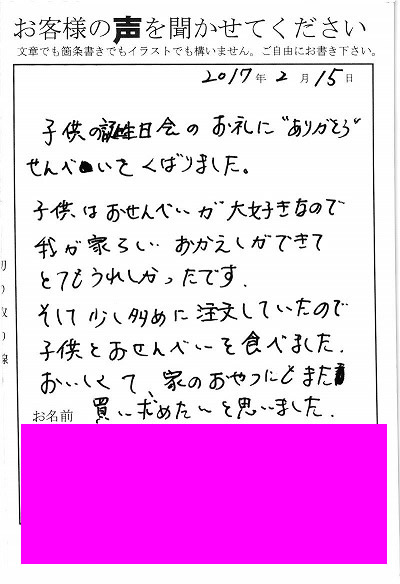 お客様の声を聞かせてください
文章でも箇条書きでもイラストでも構いません。ご自由にお書き下さい。
2017年 2月 15日
子供の誕生日会のお礼に"ありがとう"
せんべいをくばりました。
子供はおせんべいが大好きなので
我が家らしいおかえしができて
とてもうれしかったです.
そして少し多めに注文していたので
子供とおせんべいを食べました.
おいしくて、家のおやつにとまた
お名前 買い求めたいと思いました.
切り取り線